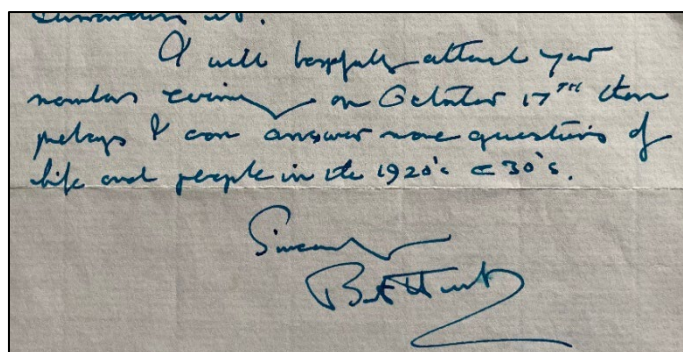 surrounding it.
I will hopefully attend your
members evening on October 17TH then
perhaps I can answer more questions of
life and people in the 1920's & 30's.
Sincerely
Bert Hunt